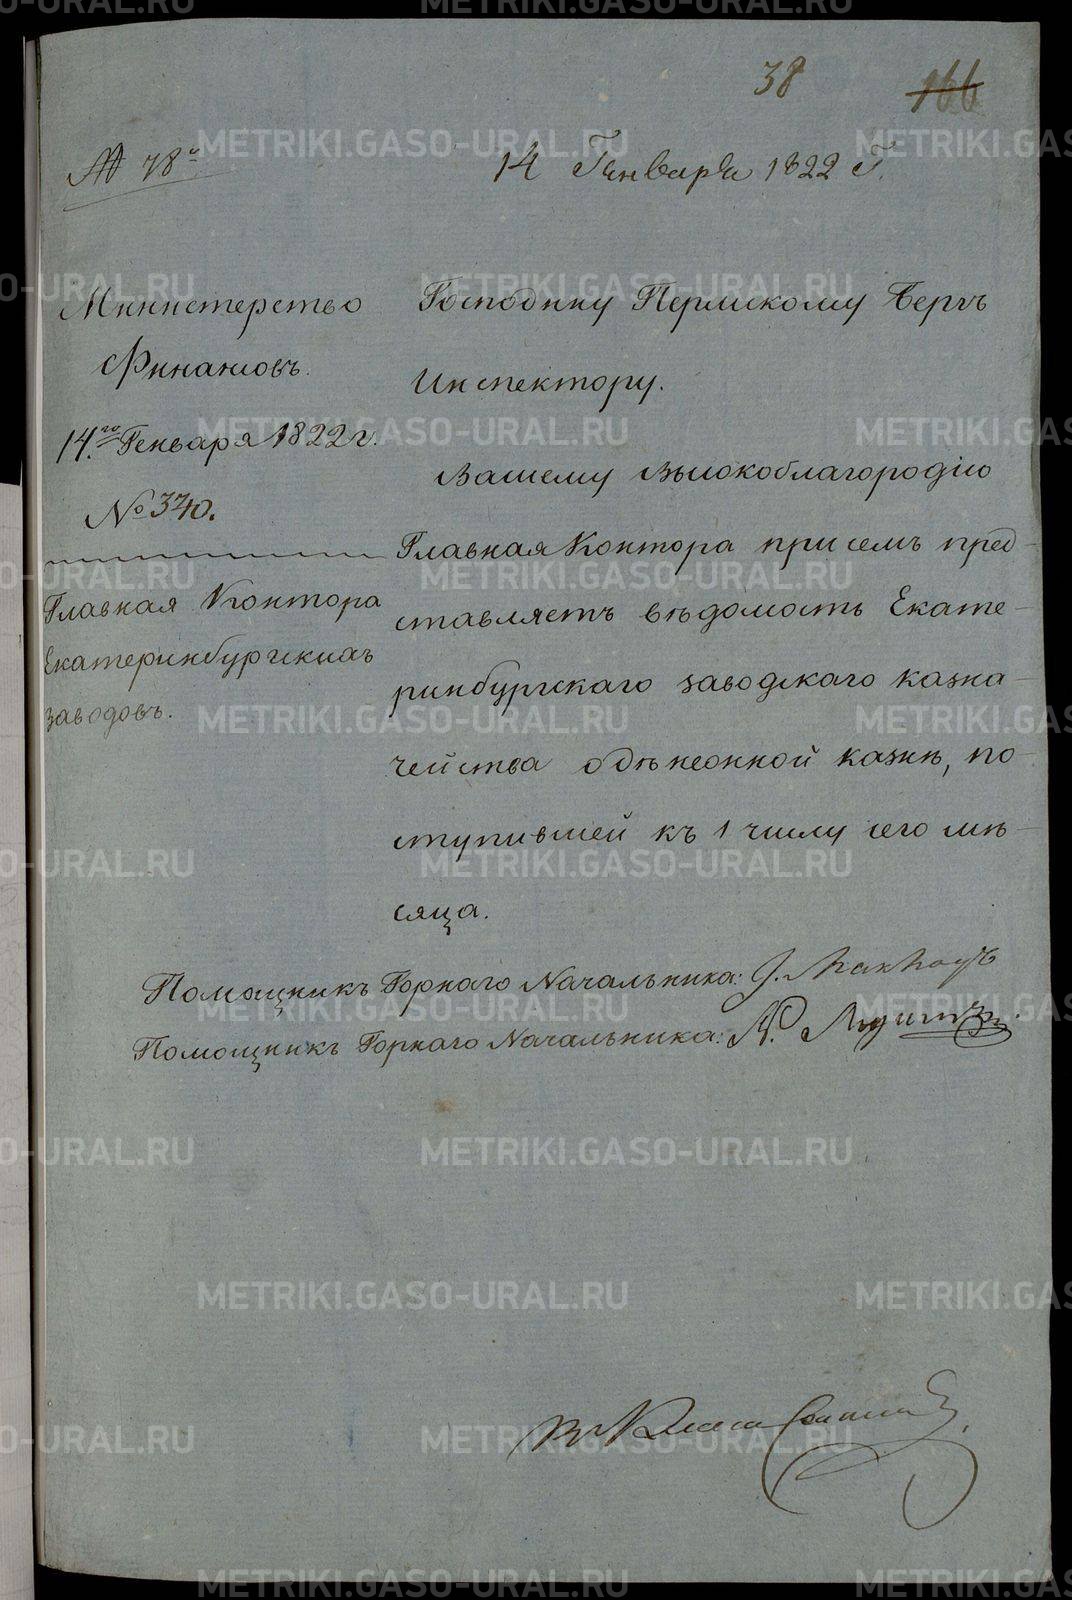 38 166
№ 78й
14 Генваря 1822 Г.
Министерство
Финансовъ.
14го Генваря 1822 г.
№ 340.
Главная Контора
Екатеринбургскихъ
заводовъ.
Господину Пермскому Бергъ
Инспектору.
Вашему Высокоблагородію
Главная Контора при семъ пред-
ставляетъ вѣдомость Екате-
ринбургскаго заводскаго казна-
чейства о дѣнежной казнѣ, по-
ступившей къ 1 числу сего мѣ-
сяца.
Помощникъ Горнаго Начальника:
Помощникъ Горнаго Начальника:
METRIKI.GASO-URAL.RU